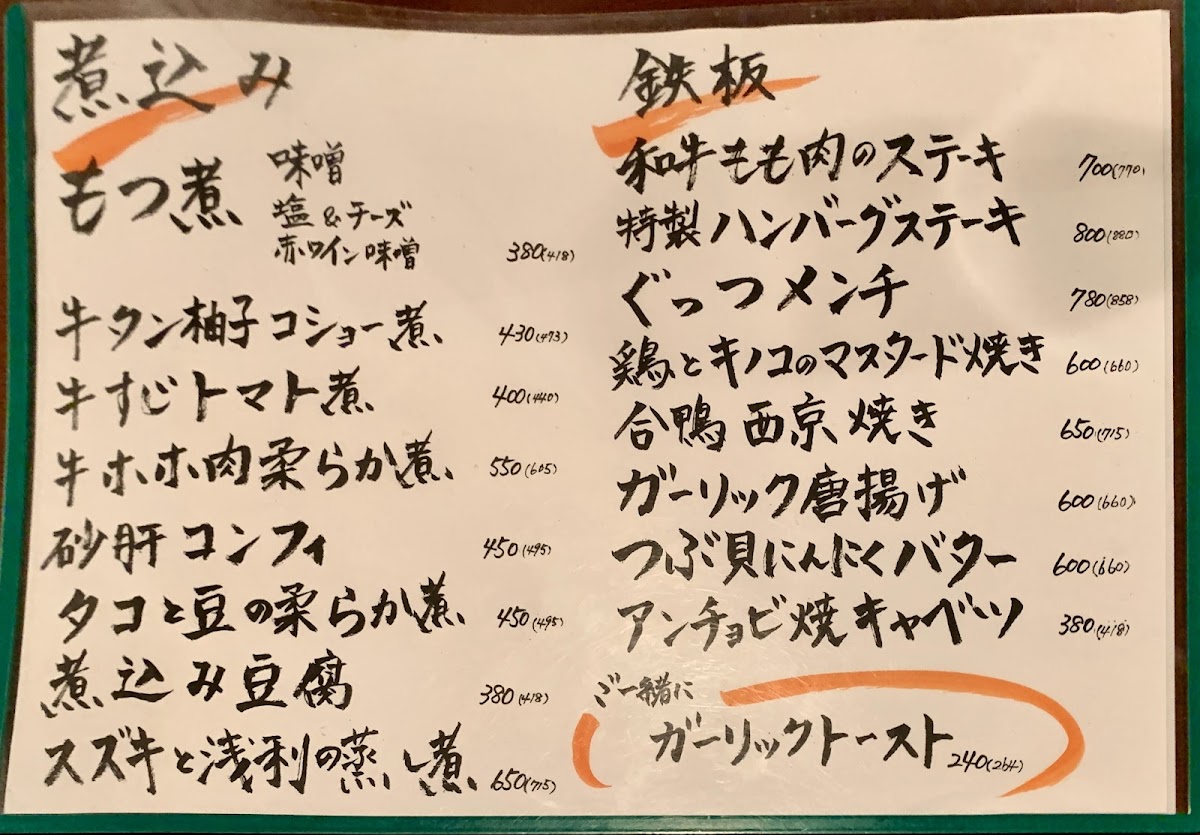 煮込み
もつ煮
味噌
塩&チーズ
赤ワイン味噌 380(418)
牛タン柚子コショー煮 430(473)
牛すじトマト煮 400(440)
牛ホホ肉柔らか煮 550(605)
砂肝コンフィ 450(495)
タコと豆の柔らか煮 450(495)
煮込み豆腐 380(418)
スズキと浅利の蒸し煮 650(715)
鉄板
和牛もも肉のステーキ 700(770)
特製ハンバーグステーキ 800(880)
ぐっつメンチ 780(858)
鶏とキノコのマスタード焼き 600(660)
合鴨西京焼き 650(715)
ガーリック唐揚げ 600(660)
つぶ貝にんにくバター 600(660)
アンチョビ焼キャベツ 380(418)
ご一緒に
ガーリックトースト 240(264)